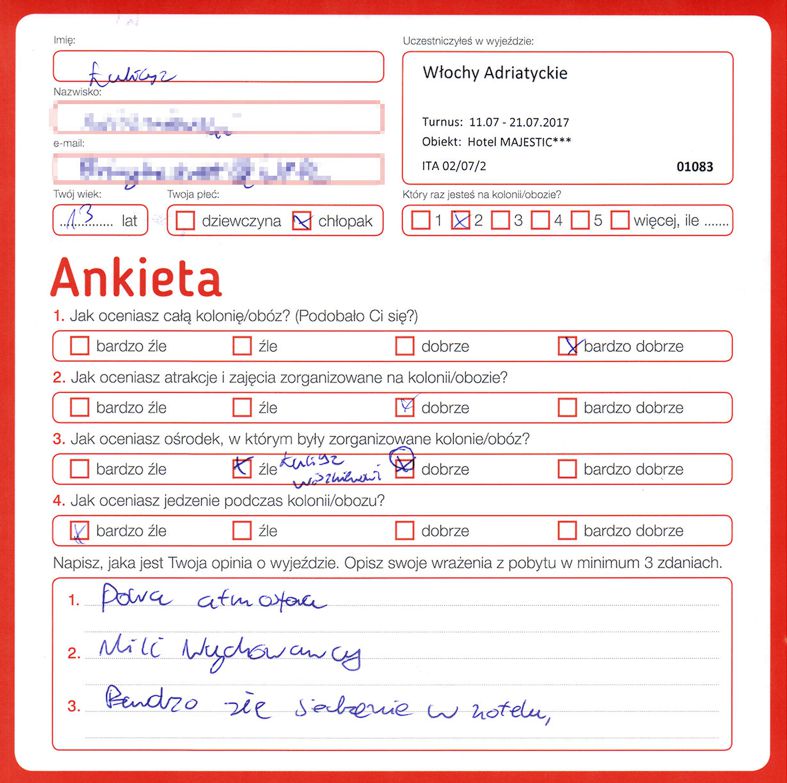 Imię:
Uczestniczyłeś w wyjeździe:
Łukasz
Włochy Adriatyckie
Nazwisko:
Turnus: 11.07 - 21.07.2017
Obiekt: Hotel MAJESTIC***
e-mail:
ITA 02/07/2 01083
Twój wiek: Twoja płeć: Który raz jesteś na kolonii/obozie?
13 lat dziewczyna chłopak 1 2 3 4 5 więcej, ile .......
Ankieta
1. Jak oceniasz całą kolonię/obóz? (Podobało Ci się?)
bardzo źle źle dobrze bardzo dobrze
2. Jak oceniasz atrakcje i zajęcia zorganizowane na kolonii/obozie?
bardzo źle źle dobrze bardzo dobrze
3. Jak oceniasz ośrodek, w którym były zorganizowane kolonie/obóz?
bardzo źle źle dobrze bardzo dobrze
4. Jak oceniasz jedzenie podczas kolonii/obozu?
bardzo źle źle dobrze bardzo dobrze
Napisz, jaka jest Twoja opinia o wyjeździe. Opisz swoje wrażenia z pobytu w minimum 3 zdaniach.
1.
2. Mili Wychowawcy
3. Bardzo złe w hotelu,